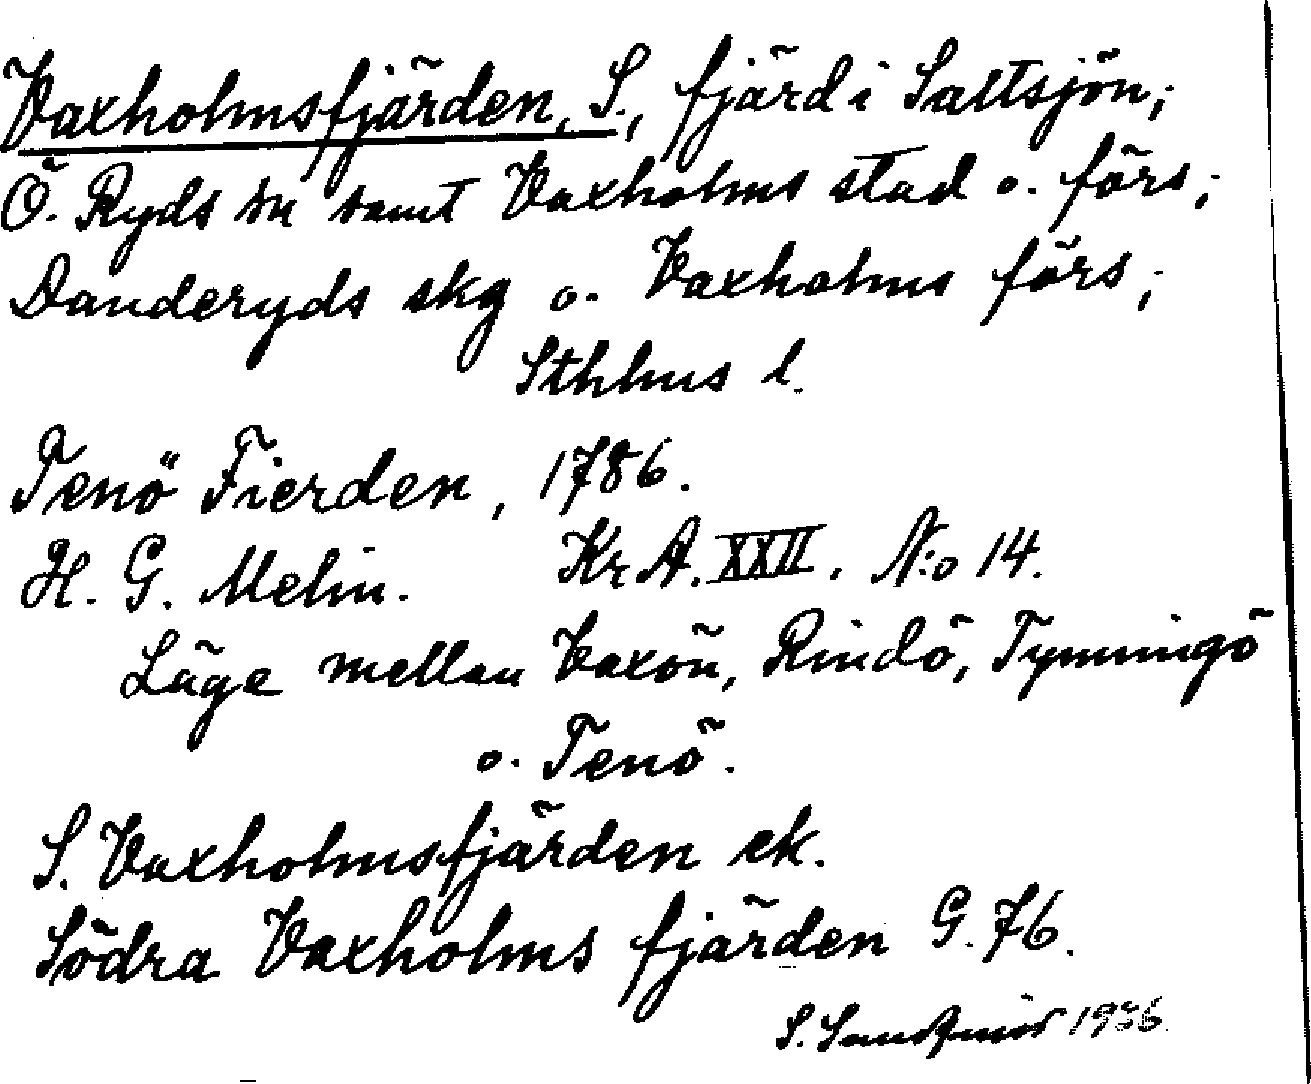 Vaxholmsfjärden, S., fjärd i Saltsjön;
Ö. Ryds sn samt Vaxholms stad o. förs;
Danderyds skg o. Vaxholms förs;
Sthlms l.
Tenö Fierden, 1786.
H. G. Melin. Kr A. XXII. N:o 14.
Läge mellan Vaxön, Rindö, Tynningö
o. Tenö.
S. Vaxholmsfjärden ek.
Södra Vaxholms fjärden G. 76.
S. 1936